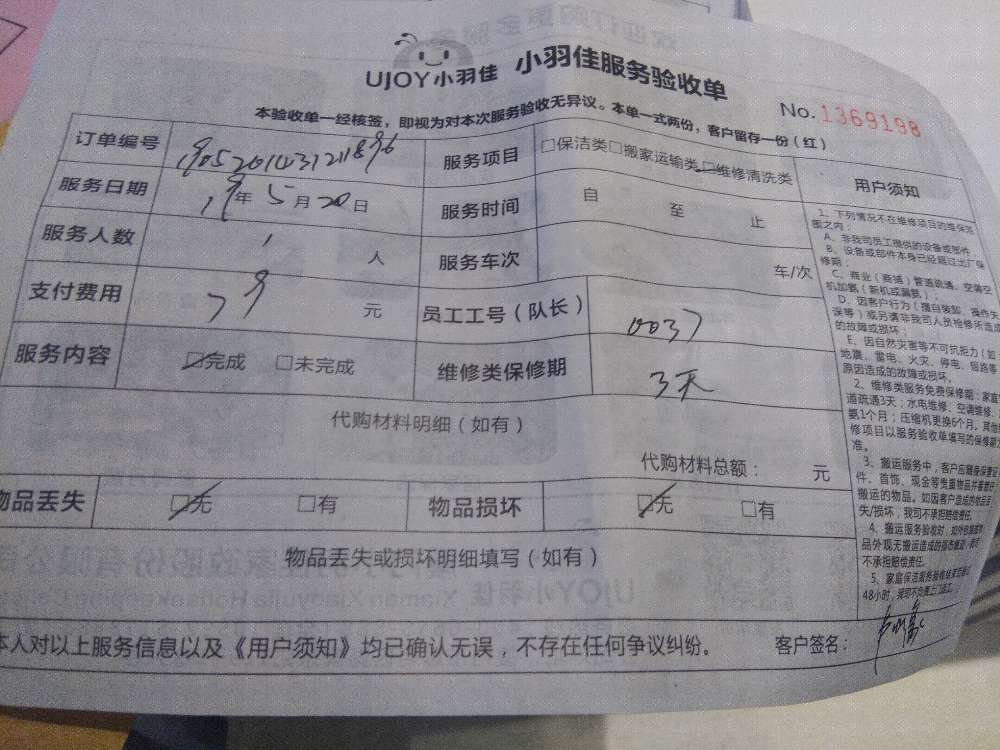 UJOY小羽佳 小羽佳服务验收单
No.1369198
本验收单一经核签，即视为对本次服务验收无异议。本单一式两份，客户留存一份（红）
订单编号 服务项目 □保洁类□搬家运输类□维修清洗类
服务日期 19年5月20日 服务时间 自 至 止
服务人数 1 人 服务车次 车/次
支付费用 79 元 员工工号（队长） 0037
服务内容 □完成 □未完成 维修类保修期 3天
代购材料明细（如有）
代购材料总额： 元
物品丢失 □无 □有 物品损坏 □无 □有
物品丢失或损坏明细填写（如有）
本人对以上服务信息以及《用户须知》均已确认无误，不存在任何争议纠纷。 客户签名：
用户须知
1、下列情况不在维修项目的维保范
围之内：
A、非我司员工提供的设备或部件
B、设备或部件本身已经超过出厂保
修期；
C、商业（商铺）管道疏通、空调空
机加氨（新机或漏氨）；
D、因客户行为（擅自装卸、操作失
误等）或另请非我司人员检修所造成
的故障或损坏；
E、因自然灾害等不可抗拒力（如
地震、雷电、火灾、停电、短路等
原因造成的故障或损坏。
2、维修类服务免费保修期：家庭
道疏通3天；水电维修、空调维修、
氨1个月；压缩机更换6个月。其他
修项目以服务验收单填写的保修期为
准。
3、搬运服务中，客户应随身保管证
件、首饰、现金等贵重物品并看管
搬运的物品。如因客户造成的物品丢
失/损坏，我司不承担赔偿责任。
4、搬运服务验收时，如外包装
品外观无搬运造成的损伤痕迹，
不承担赔偿责任。
5、家庭保洁服务验收结束后
48小时，